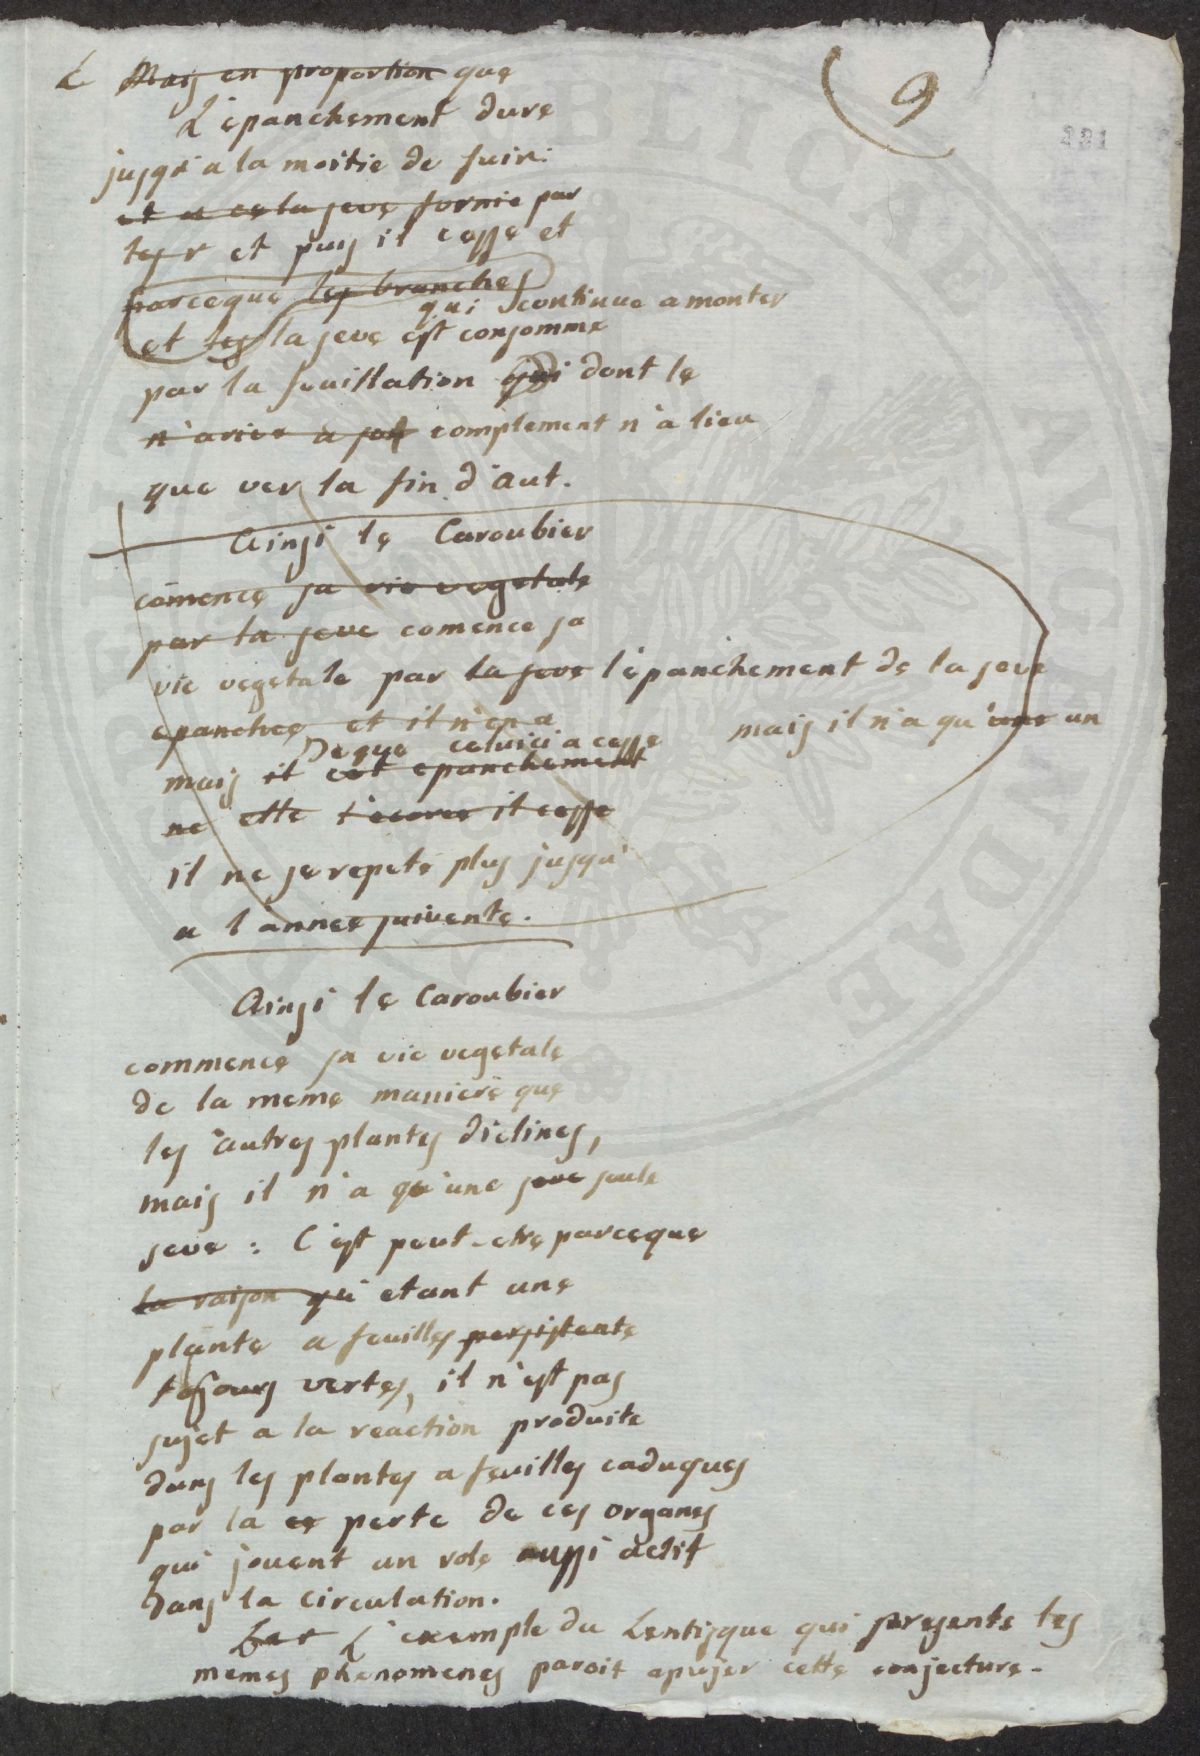 L Mais en proportion que
9
221
L'epanchement dure
jusqu'a la moitie de Juin:
et a ce la seve fornie par
et puis il cesse et
parceque les branches
qui continue a monter
et les la seve est consommé
par la feuillation qui dont le
n'arive a complement n'a lieu
que ver la fin d'Aut.
Ainsi le Caroubier
comence sa vie vegetale
par la seve comence sa
vie vegetale par la seve l'epanchement de la seve
epanchee et il n'en a mais il n'a qu'une un
Deque celuici a cessé
mais il epanchement
ne elle il cesse
il ne se repete plus jusqu'
a l'année suivente.
Ainsi le Caroubier
commence sa vie vegetale
de la meme maniere que
les autres plantes diclines,
mais il n'a qu'une seve seule
seve: C'est peut-etre parceque
la raison qui etant une
plante a feuilles persistente
tojours vertes, il n'est pas
sujet a la reaction produite
dans les plantes a feuilles caduques
par la ce perte de ces organes
qui jouent un role aussi actif
dans la circulation.
L'exemple du Lentisque qui presente les
memes phenomenes paroit apujer cette conjecture.